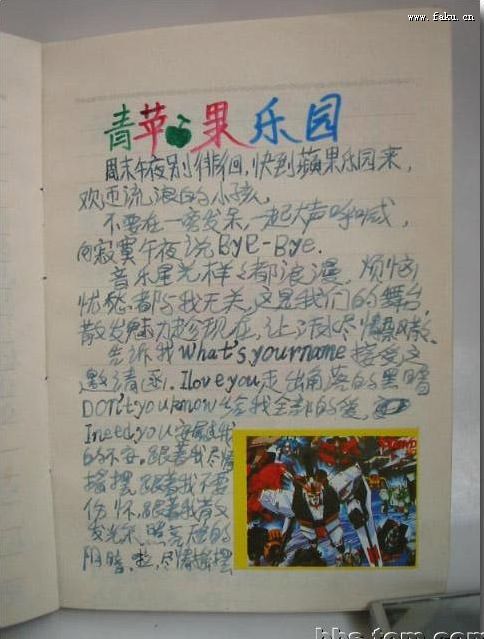 www.faku.cn
青苹果乐园
周末午夜别徘徊,快到蘋果乐园来,
欢迎流浪的小孩,
不要在一旁发呆,一起大声呼喊,
向寂寞午夜说Bye-Bye.
音乐星光样样都浪漫,烦恼
忧愁都与我无关,这是我们的舞台,
散发魅力趁现在,让汗水尽情
告诉我What's your name 接受这
邀请函.I love you 走出角落的黑暗
DON't you know 给我全部的爱.
I need you 安慰我
的不安.跟着我尽情
摇摆 跟着我不要
伤怀.跟着我散
发光 照亮 的
阴暗.啦,尽情摇摆
bbs.tom.com